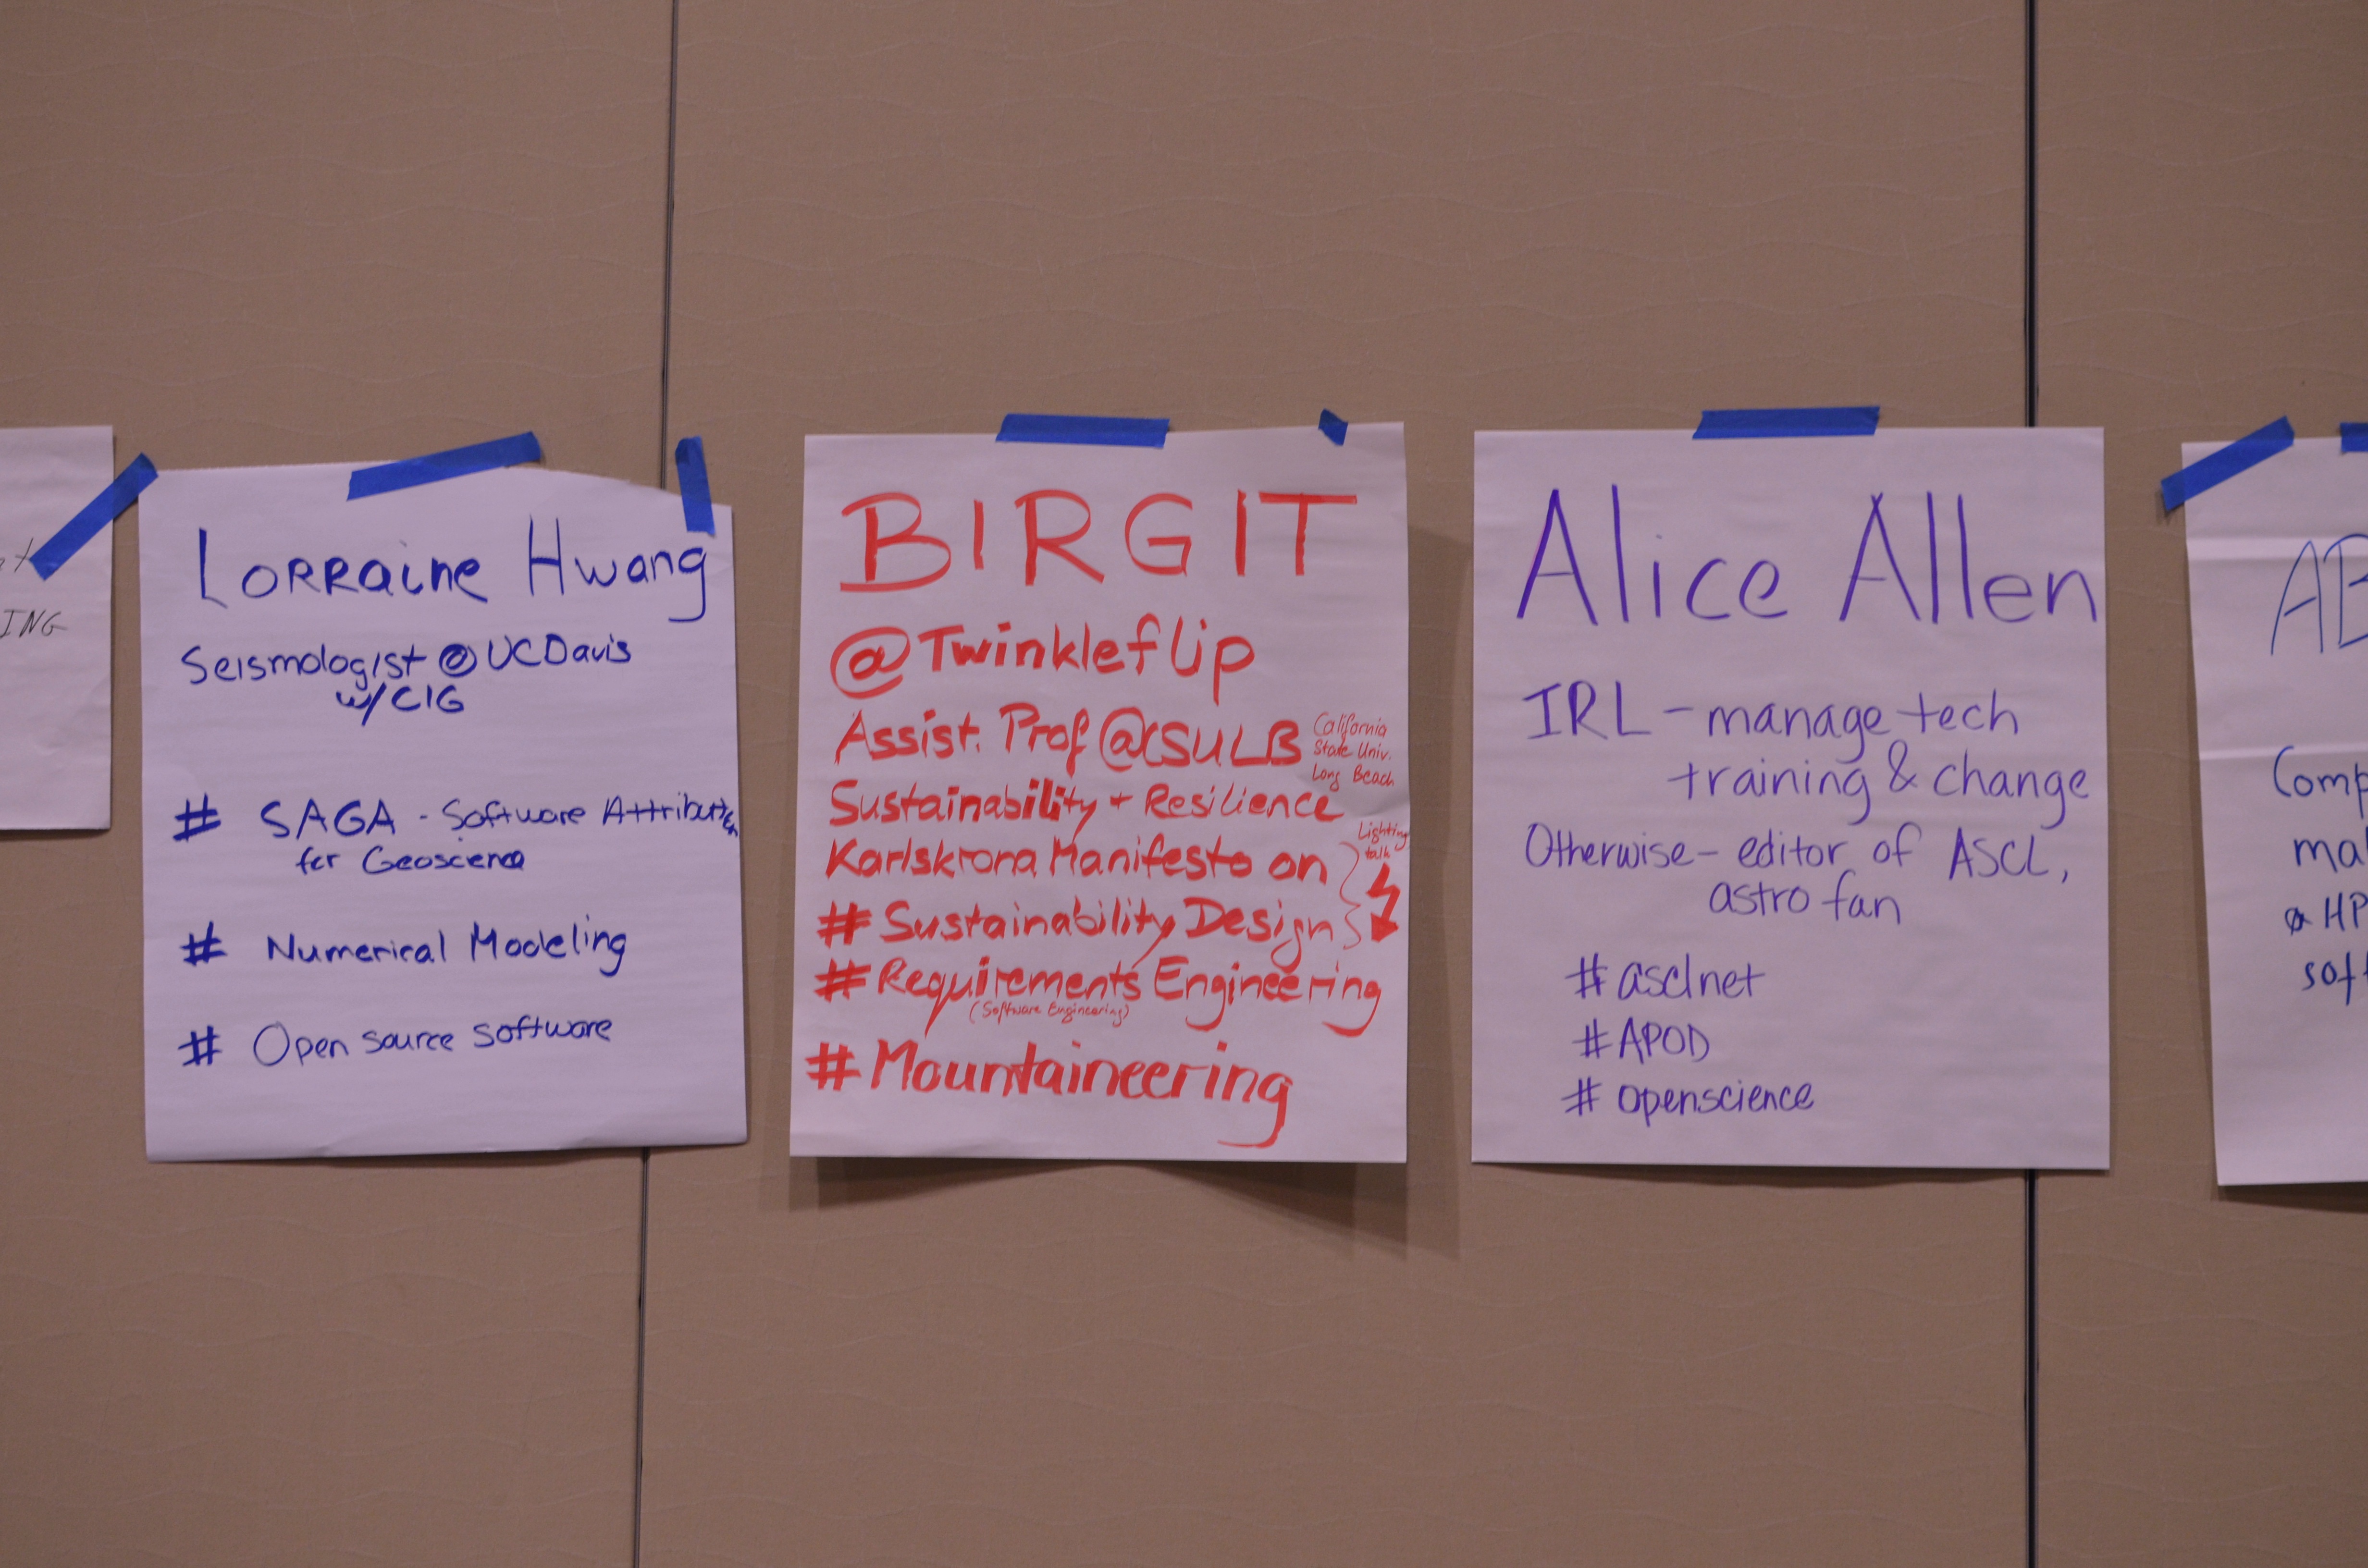 ING
Lorraine Hwang
Seismologist @ UCDavis
w/CIG
# SAGA - Software Attribution
for Geoscience
# Numerical Modeling
# Open source software
BIRGIT
@Twinkleflip
Assist. Prof @CSULB
California
State Univ.
Long Beach
Sustainability + Resilience
Karlskrona Manifesto on
Lighting
talk
# Sustainability Design
# Requirements Engineering
(Software Engineering)
# Mountaineering
Alice Allen
IRL - manage tech
training & change
Otherwise - editor of ASCL,
astro fan
# asclnet
# APOD
# openscience
AB
Comp
ma
HP
sof